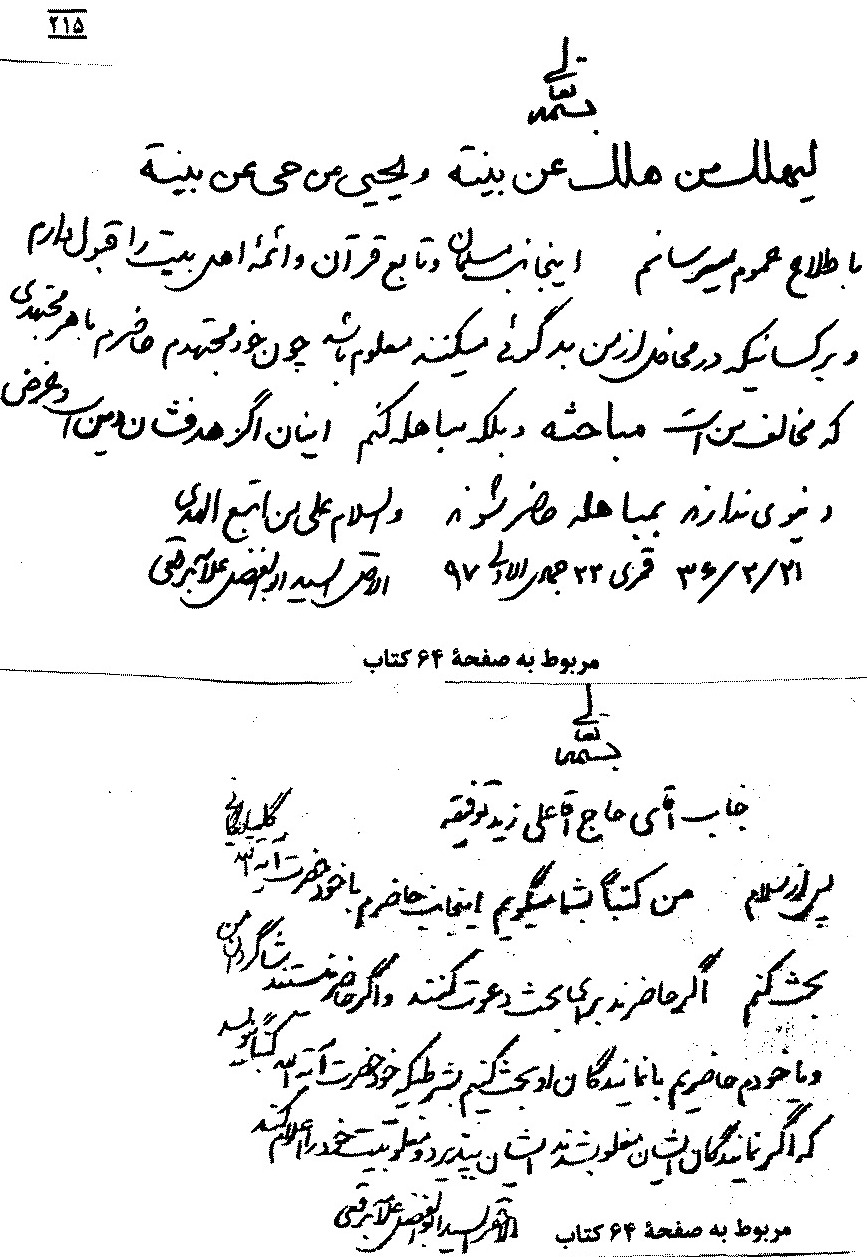 ۲۱۵
بسمه تعالی
لیهلک من هلک عن بینة و یحیی من حی عن بینة
باطلاع عموم میرسانم اینجانب مسلمان و تابع قرآن و ائمهٔ اهل بیت را قبول دارم
و بر کسانیکه در محافل از من بدگوئی میکنند معلوم باشد چون خود مجتهدم حاضرم با هر مجتهدی
که مخالف من است مباحثه و بلکه مباهله کنم اینان اگر هدفشان دین است و غرض
دنیوی ندارند بمباهله حاضر شوند والسلام علی من اتبع الهدی
۳۶/۲/۲۱ قمری ۲۳ جمادی الاولی ۹۷ الاقل السید ابوالفضل علامه برقعی
مربوط به صفحهٔ ۶۴ کتاب
بسمه تعالی
جناب آقای حاج آقا علی زید توفیقه
پس از سلام من کتباً بشما میگویم اینجانب حاضرم با خود حضرت آیة الله گلپایگانی
بحث کنم اگر حاضرند برای بحث دعوت کنند و اگر حاضر نیستند شاگردان من
و یا خودم حاضریم با نمایندگان او بحث کنیم بشرطیکه خود حضرت آیة الله کتباً بنویسد
که اگر نمایندگان ایشان مغلوب شدند ایشان بپذیرد و مغلوبیت خود را اعلام کنند
الاحقر السید ابوالفضل علامه برقعی
مربوط به صفحهٔ ۶۴ کتاب